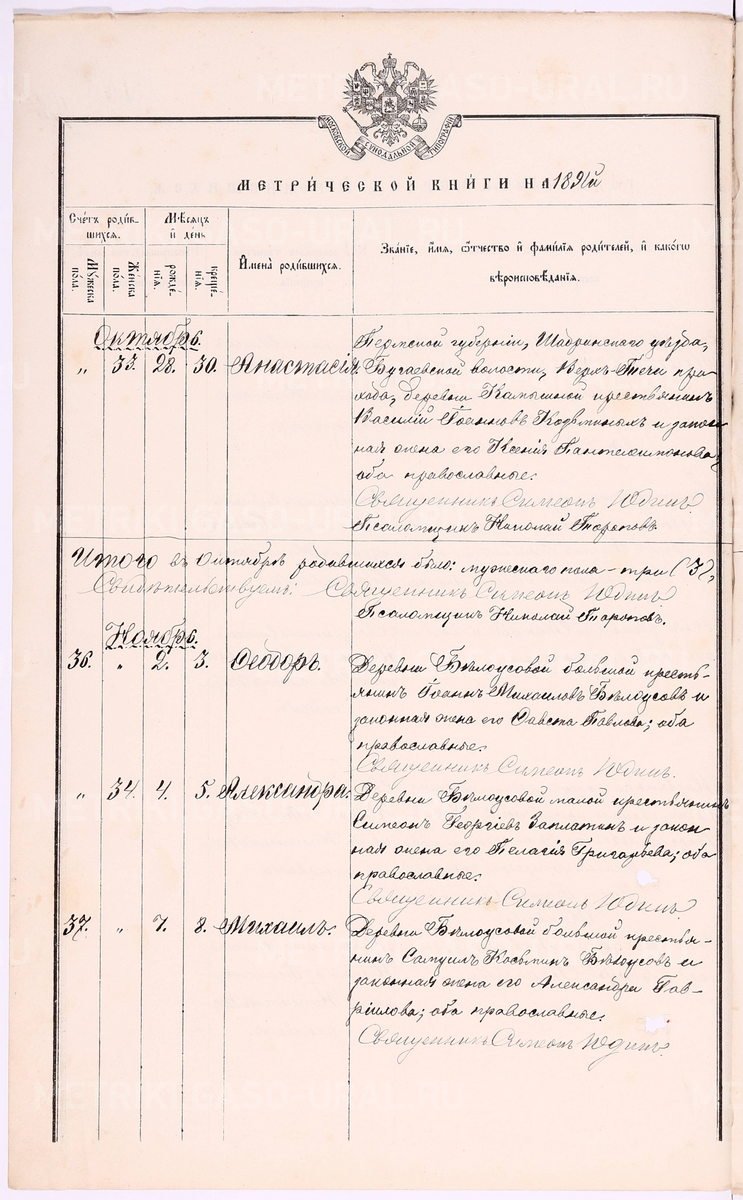 МОСКОВСКОЙ СѴНОДАЛЬНОЙ ТИПОГРАФІИ
МЕТРИ́ЧЕСКОЙ КНИ́ГИ НА 1891й
Сче́тъ роди́в-
шихся.
Мꙋ́жеска
пола.
Же́нска
пола.
Мѣ́сяцъ
и҆ де́нь
рожде́-
нїѧ.
креще́-
нїѧ.
И҆мена̀ роди́вшихся.
Зва́нїе, и҆́мѧ, ѻ҆́тчество и҆ фами́лїѧ роди́телей, и҆ како́гѡ
вѣроисповѣ́данїѧ.
Октябрь.
„ 33. 28. 30. Анастасія.
Пермской губерніи, Шадринскаго уѣзда,
Бугаевской волости, Верх-Течи при-
хода, деревни Камышной крестьянинъ
Василій Іоанновъ и закон-
ная жена его Ксенія Пантелеимонова;
оба православные.
Священникъ Симеонъ Юдинъ.
Псаломщикъ Николай Тороповъ.
Итого въ Октябрѣ родившихся было: мужескаго пола – три (3),
Свидѣтельствуемъ: Священникъ Симеонъ Юдинъ
Псаломщикъ Николай Тороповъ.
Ноябрь.
36. „ 2. 3. Ѳеодоръ.
Деревни Бѣлоусовой большой кресть-
янинъ Іоаннъ Михаиловъ Бѣлоусовъ и
законная жена его Павлова; оба
православные.
Священникъ Симеонъ Юдинъ.
„ 34. 4. 5. Александра.
Деревни Бѣлоусовой малой крестьянинъ
Симеонъ Георгіевъ Заплатинъ и закон-
ная жена его Пелагія Григорьева; оба
православные.
Священникъ Симеонъ Юдинъ.
37. „ 7. 8. Михаилъ.
Деревни Бѣлоусовой большой крестья-
нинъ Самуилъ Косьминъ Бѣлоусовъ и
законная жена его Александра Гав-
ріилова; оба православные.
Священникъ Симеонъ Юдинъ.
METRIKI.GASO-URAL.RU